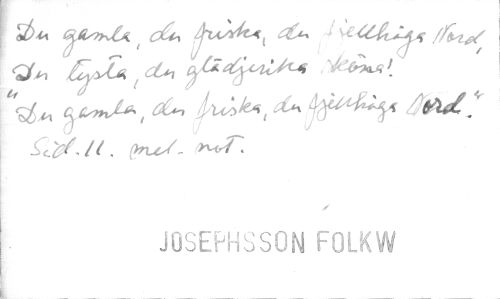 Du gamla, du friska, du fjellhöga Nord,
Du tysta, du glädjerika sköna!
"Du gamla, du friska, du fjellhöga Nord."
Sid. 11. mel. not.
JOSEPHSSON FOLKW